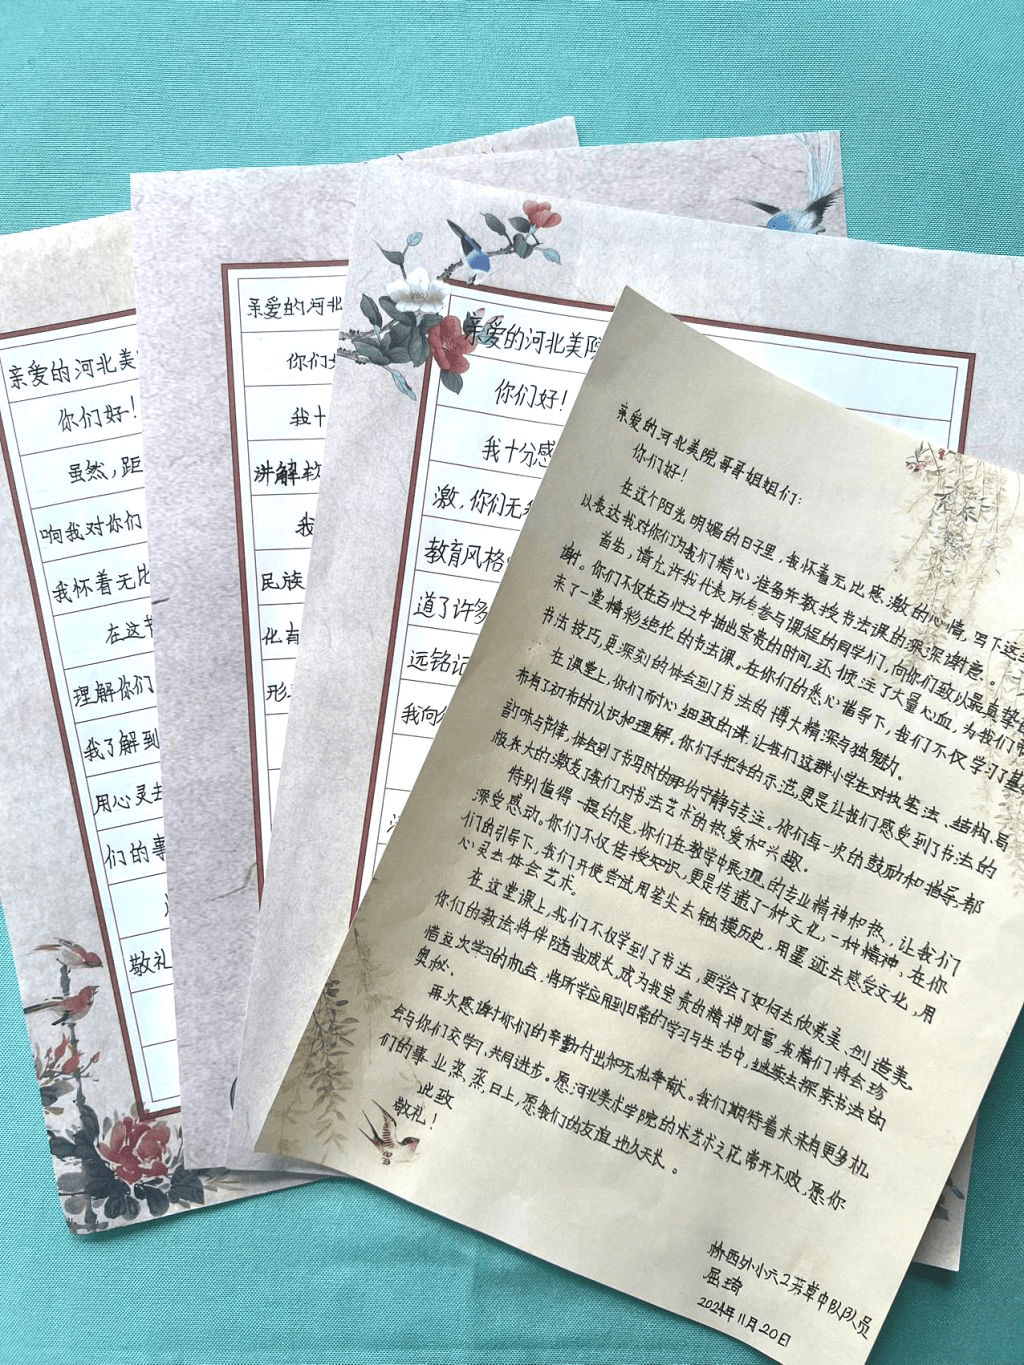 亲爱的河北美
你们好！
虽然，距
响我对你们
我怀着无比
在这节
理解你们
我了解到
用心灵去
们的事
敬礼
亲爱的河北
你们
我十
讲解教
我
民族
化有
形
亲爱的河北美院
你们好！
我十分感
激，你们无私
教育风格
道了许多
远铭记
我向
亲爱的河北美院哥哥姐姐们：
你们好！
在这个阳光明媚的日子里，我怀着无比感激的心情，写下这
以表达我对你们为我们精心准备并教授书法课的深深谢意。
首生，请允许我代表所有参与课程的同学们，向你们致以最真挚
谢。你们不仅在百忙之中抽出宝贵的时间，还倾注了大量心血，为我们带
来了一堂精彩绝伦的书法课。在你们的悉心指导下，我们不仅学习了基
书法技巧，更深刻的体会到了书法的博大精深与独魅力。
在课堂上，你们耐心细致的讲，让我们这群小学在对执笔法、结构、局
布有了初布的认识和理解。你们手把手的示范，更是让我们感觉到了书法的
韵味与节律，体会到了书写时的那份宁静与专注。你们每一次的鼓励和指导，都
极大的激发了我们对书法艺术的热爱和兴趣。
特别值得一提的是，你们在教学中展现的专业精神和热，让我们
深受感动。你们不仅传授知识，更是传递了一种文化，一种精神，在你
们的引导下，我们开使尝试用笔尖去触摸历史，用墨迹去感受文化，用
心灵去体会艺术。
在这堂课上，我们不仅学到了书法，更学会了如何去欣赏美、创造美。
你们的教诠将伴随我成长，成为我宝贵的精神财富，我橘们将会珍
惜立次学习的机会，将所学应用到日常的学习与生活中，继续去探索书法的
奥秘。
再次感谢你们的辛勤付出和无私奉献。我们期待着未来有更多机
会与你们交学习、共同进步。愿河北美术学院的术艺术之花常开不败，愿你
们的事业蒸蒸日上，愿我们的友谊地久天长。
此致
敬礼！
桥西外小六卫芳草中队队员
屈琦
2024年11月20日